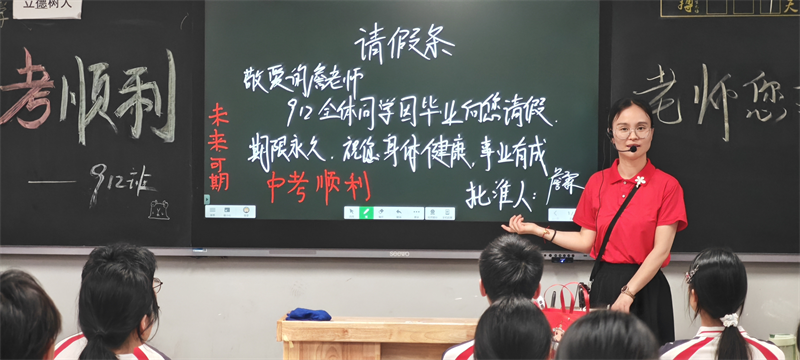 立德树人
考顺利
——912班
请假条
敬爱的詹老师
912全体同学因毕业向您请假.
期限永久.祝您身体健康,事业有成
未来可期
中考顺利
批准人:
老师您
seewo